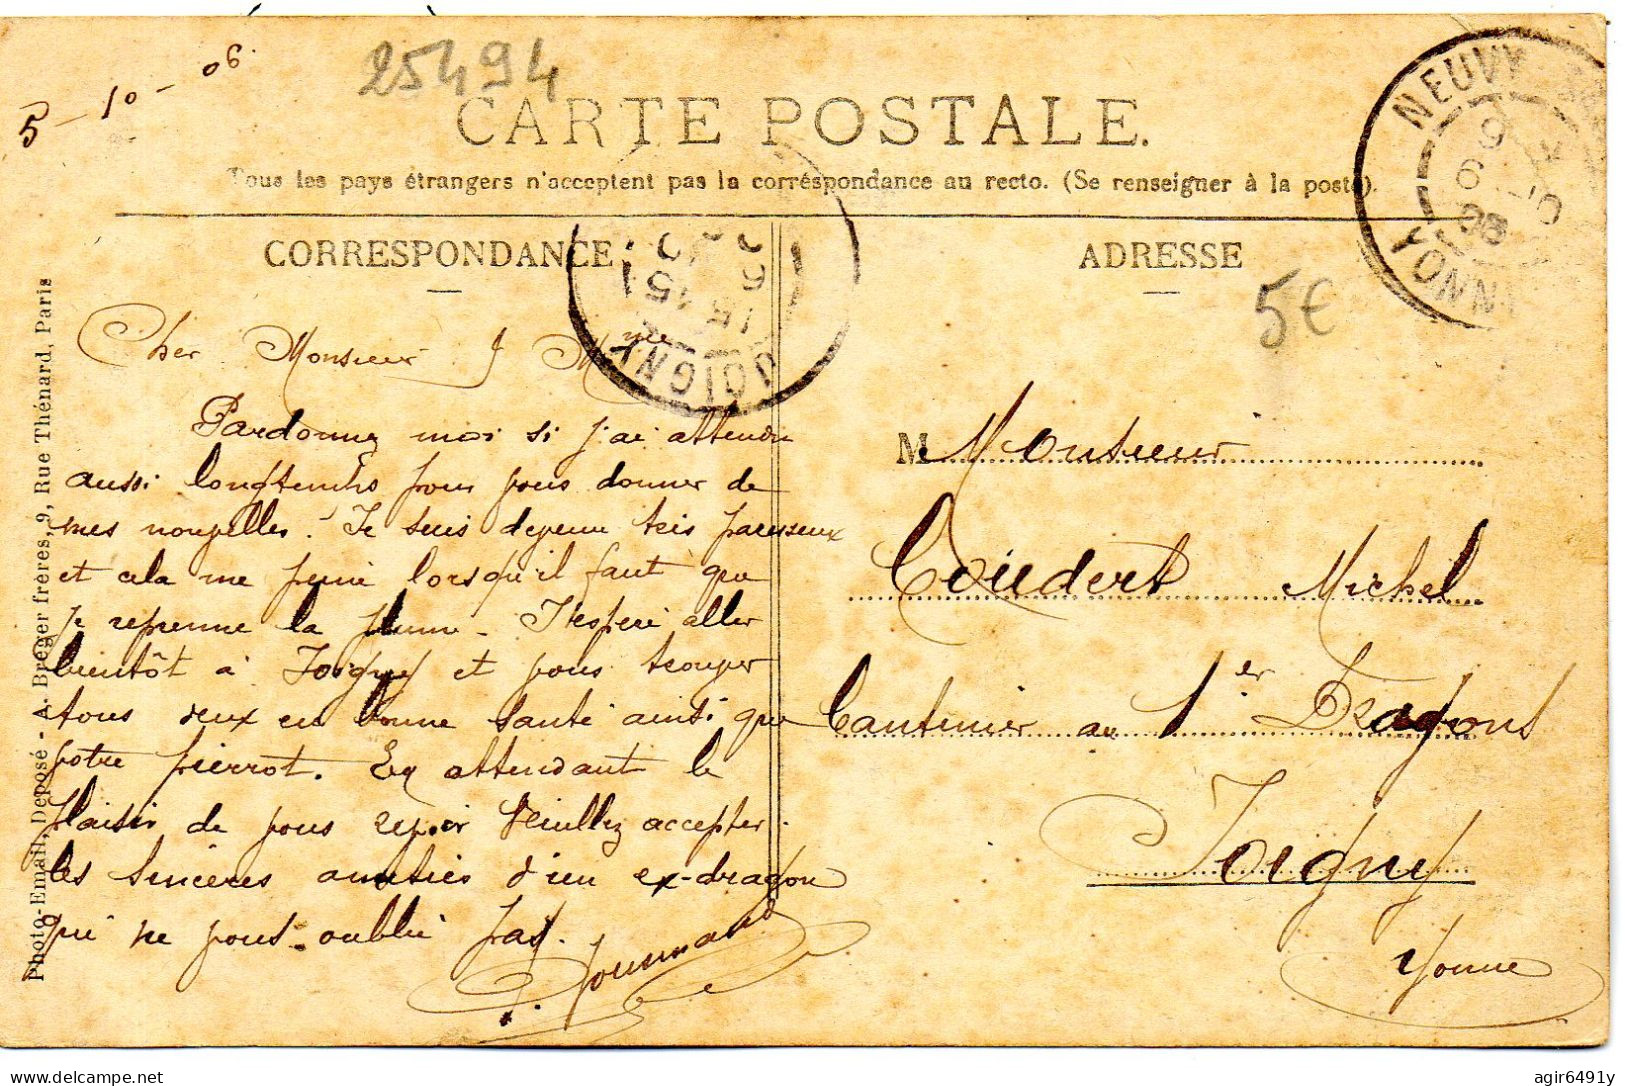 5 - 10 - 06
25494
CARTE POSTALE.
Tous les pays étrangers n'acceptent pas la correspondance au recto. (Se renseigner à la poste).
CORRESPONDANCE
ADRESSE
5€
NEUVY
YONNE
JOIGNY
Photo-Email, Déposé - A. Breger frères, 9, Rue Thénard, Paris
Cher Monsieur & Mme
Pardonnez moi si j'ai attendu
aussi longtemps pour vous donner de
mes nouvelles. Je suis devenu très paresseux
et cela me peine lorsqu'il faut que
je reprenne la plume. J'espère aller
bientôt à Joigny et vous trouver
tous deux en bonne santé ainsi que
votre pierrot. En attendant le
plaisir de vous revoir Veuillez accepter
les sincères amitiés d'un ex-dragon
qui ne vous oublie pas.
M Monsieur
Coudert Michel
Cantinier au 1er Dragons
Joigny
Yonne
delcampe.net
agir6491y